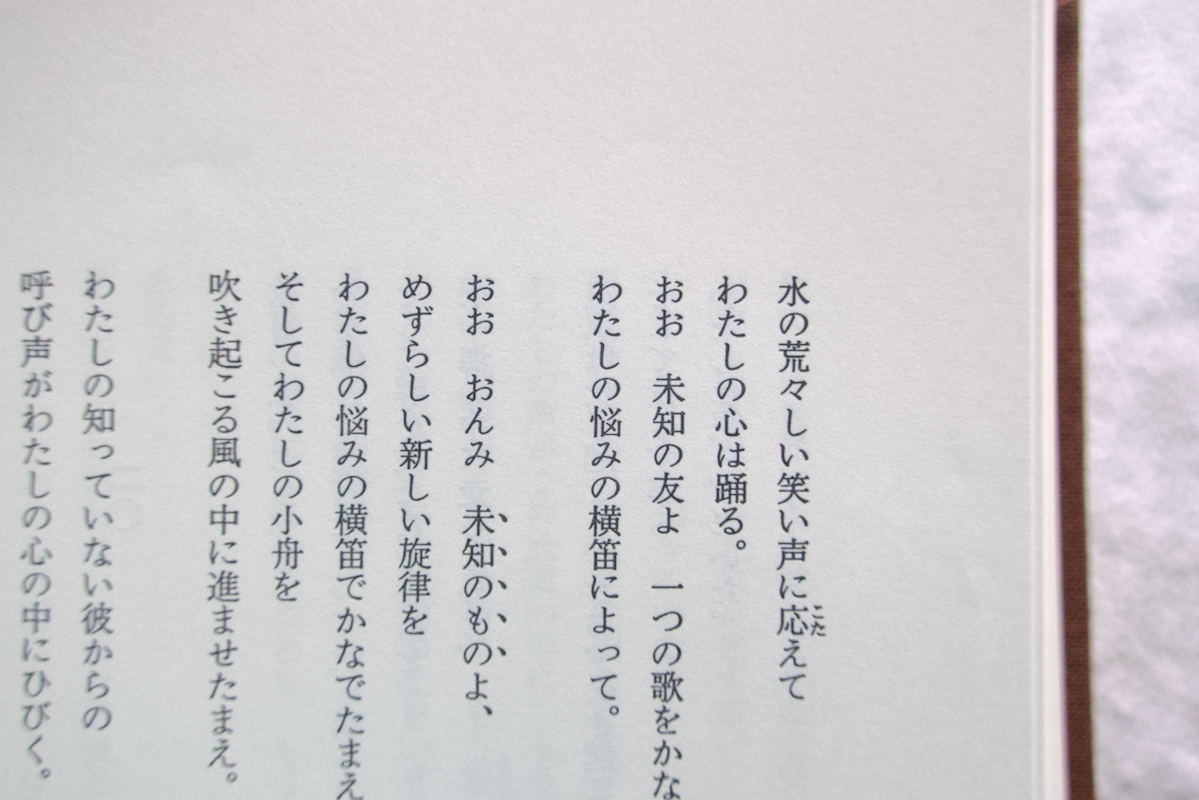 水の荒々しい笑い声に応えて
わたしの心は踊る。
おお　未知の友よ　一つの歌をかな
わたしの悩みの横笛によって。
おお　おんみ　未知のものよ、
めずらしい新しい旋律を
わたしの悩みの横笛でかなでたまえ
そしてわたしの小舟を
吹き起こる風の中に進ませたまえ。
わたしの知っていない彼からの
呼び声がわたしの心の中にひびく。